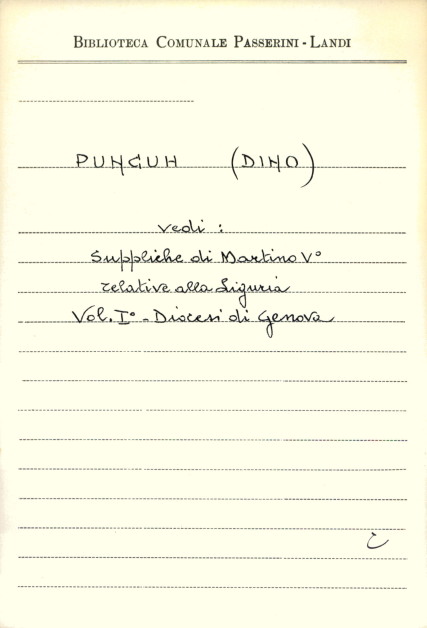 BIBLIOTECA COMUNALE PASSERINI - LANDI
PUNGUH (DINO)
vedi :
Suppliche di Martino V°
relative alla Liguria
Vol. I° - Diocesi di Genova